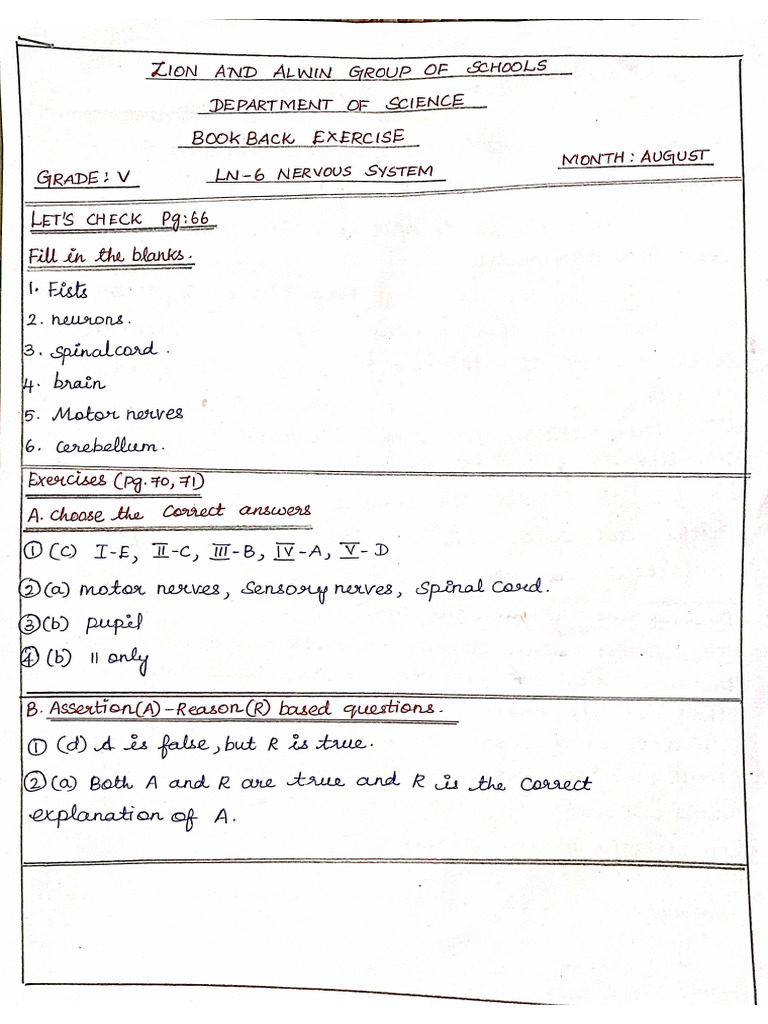 ZION AND ALWIN GROUP OF SCHOOLS
DEPARTMENT OF SCIENCE
BOOK BACK EXERCISE
GRADE: V LN-6 NERVOUS SYSTEM MONTH: AUGUST
LET'S CHECK Pg:66
Fill in the blanks.
1. Fists
2. neurons.
3. spinalcord.
4. brain
5. Motor nerves
6. cerebellum.
Exercises (pg.70,71)
A. choose the correct answers
① (c) I-E, II-C, III-B, IV-A, V-D
② (a) motor nerves, sensory nerves, spinal cord.
③ (b) pupil
④ (b) II only
B. Assertion(A)-Reason(R) based questions.
① (d) A is false, but R is true.
② (a) Both A and R are true and R is the correct
explanation of A.